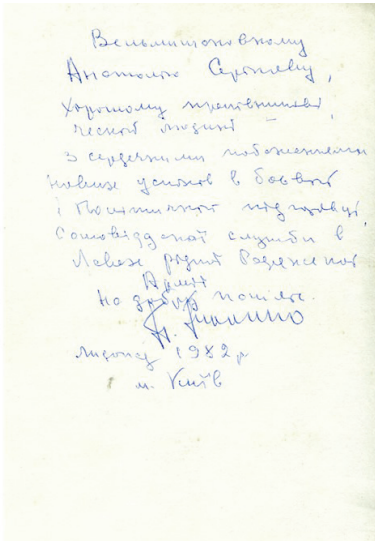 Вельмишановному
Анатолію Сергієву,
Хорошому працівникові,
чесній людині
з сердечними побажаннями
нових успіхів в бойовій
і політичній підготовці,
самовідданої служби в
лавах рідної Радянської
Армії
на добру пам'ять.
листопад 1982 р
м. Київ